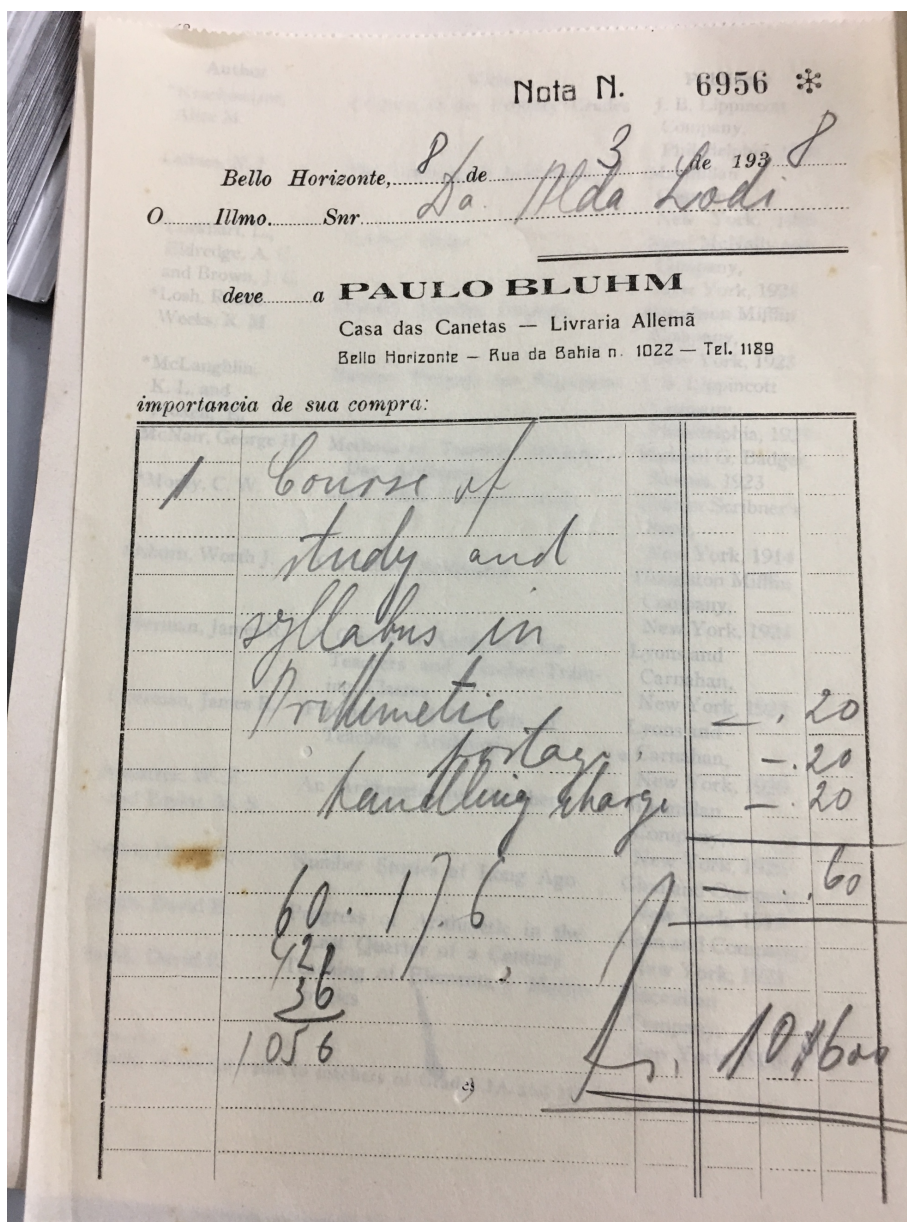 Nota N. 6956 ✻
Bello Horizonte, 8 de 3 de 1938
O Illmo. Snr Da. Alda Lodi
deve a PAULO BLUHM
Casa das Canetas — Livraria Allemã
Bello Horizonte — Rua da Bahia n. 1022 — Tel. 1189
importancia de sua compra:
1 Course of
study and
syllabus in
Arithmetic —.20
postage —.20
handling charge —.20
60.176 —.60
420
36
1056 Rs. 10$600